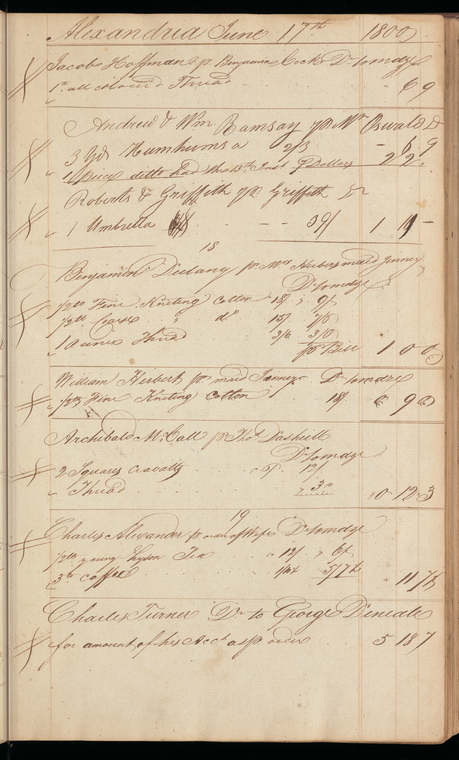 Alexandria June 17th 1800
Jacob Hoffman pr Benjamin Cocks Dr to mdze
1 oz all coloured Thread - 6 9
Andrew & Wm Ramsay pr Mr Oswald Dr
3 Yds Humhums a 2/3 - 6 9
1 Piece ditto had the 13th Inst 9 Dollars 2 2
Roberts & Griffith pr Griffith Dr
1 Umbrella - - 39/ 1 19 -
18
Benjamin pr Mrs Herberts maid Jenney
Dr to mdze
1/2 lb Fine Kniting Cotton 18/ 9/
1/2 lb Coarse do 15/ 7/6
1 Ounce Thread 3/6 3/6
pr Bill 1 0 0
William Herbert pr maid Jenney Dr to mdze
1/2 lb Fine Kniting Cotton 18/ 0 9 0
Archibald McCall pr Thos Dashiell
Dr to mdze
2 Squares Cravatts a 6/ 12/
Thread 3
0 12 3
19
Charles Alexander pr order of Wife Dr to mdze
1/2 lb young Hyson Tea a 12/ 6/
3 lb Coffee 1/10 1/2 5/7 1/2
11 7 1/2
Charles Turner Dr to George Deneale
for amount of his Acct as pr order 5 18 7